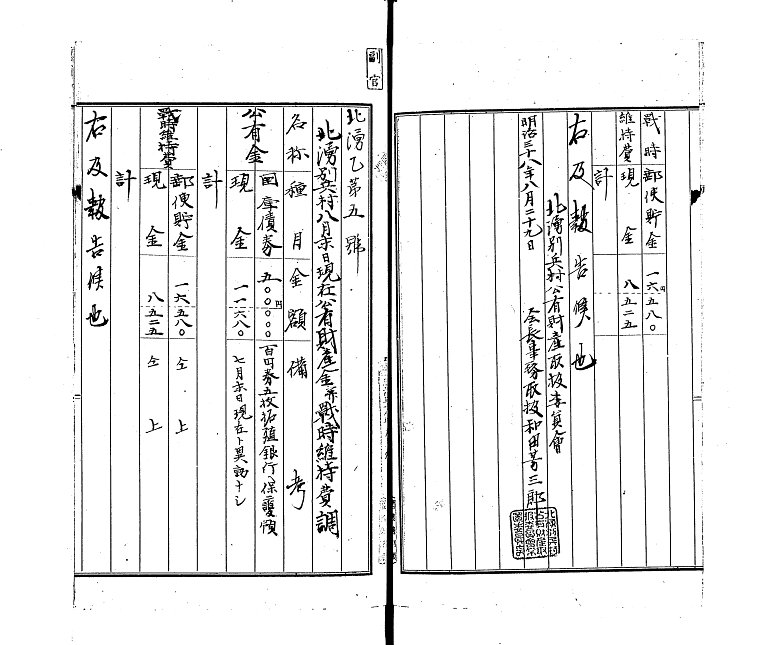 戰時
維持費
郵便貯金 一六円五八〇
現金 八五二五
計
右及報告候也
北湧別兵村公有財産取扱委員會
明治三十八年八月二十九日
会長事務取扱和田芳三郎
副官
北湧乙第五號
北湧別兵村八月末日現在公有財産金并戰時維持費調
名称 種目 金額 備考
公有金 国庫債券 五〇〇円〇〇〇 百円券五枚拓殖銀行ヘ保護預
現金 一一六八〇 七月末日現在ト異動ナシ
計
戰時維持費 郵便貯金 一六五八〇 仝上
現金 八五二五 仝上
計
右及報告候也